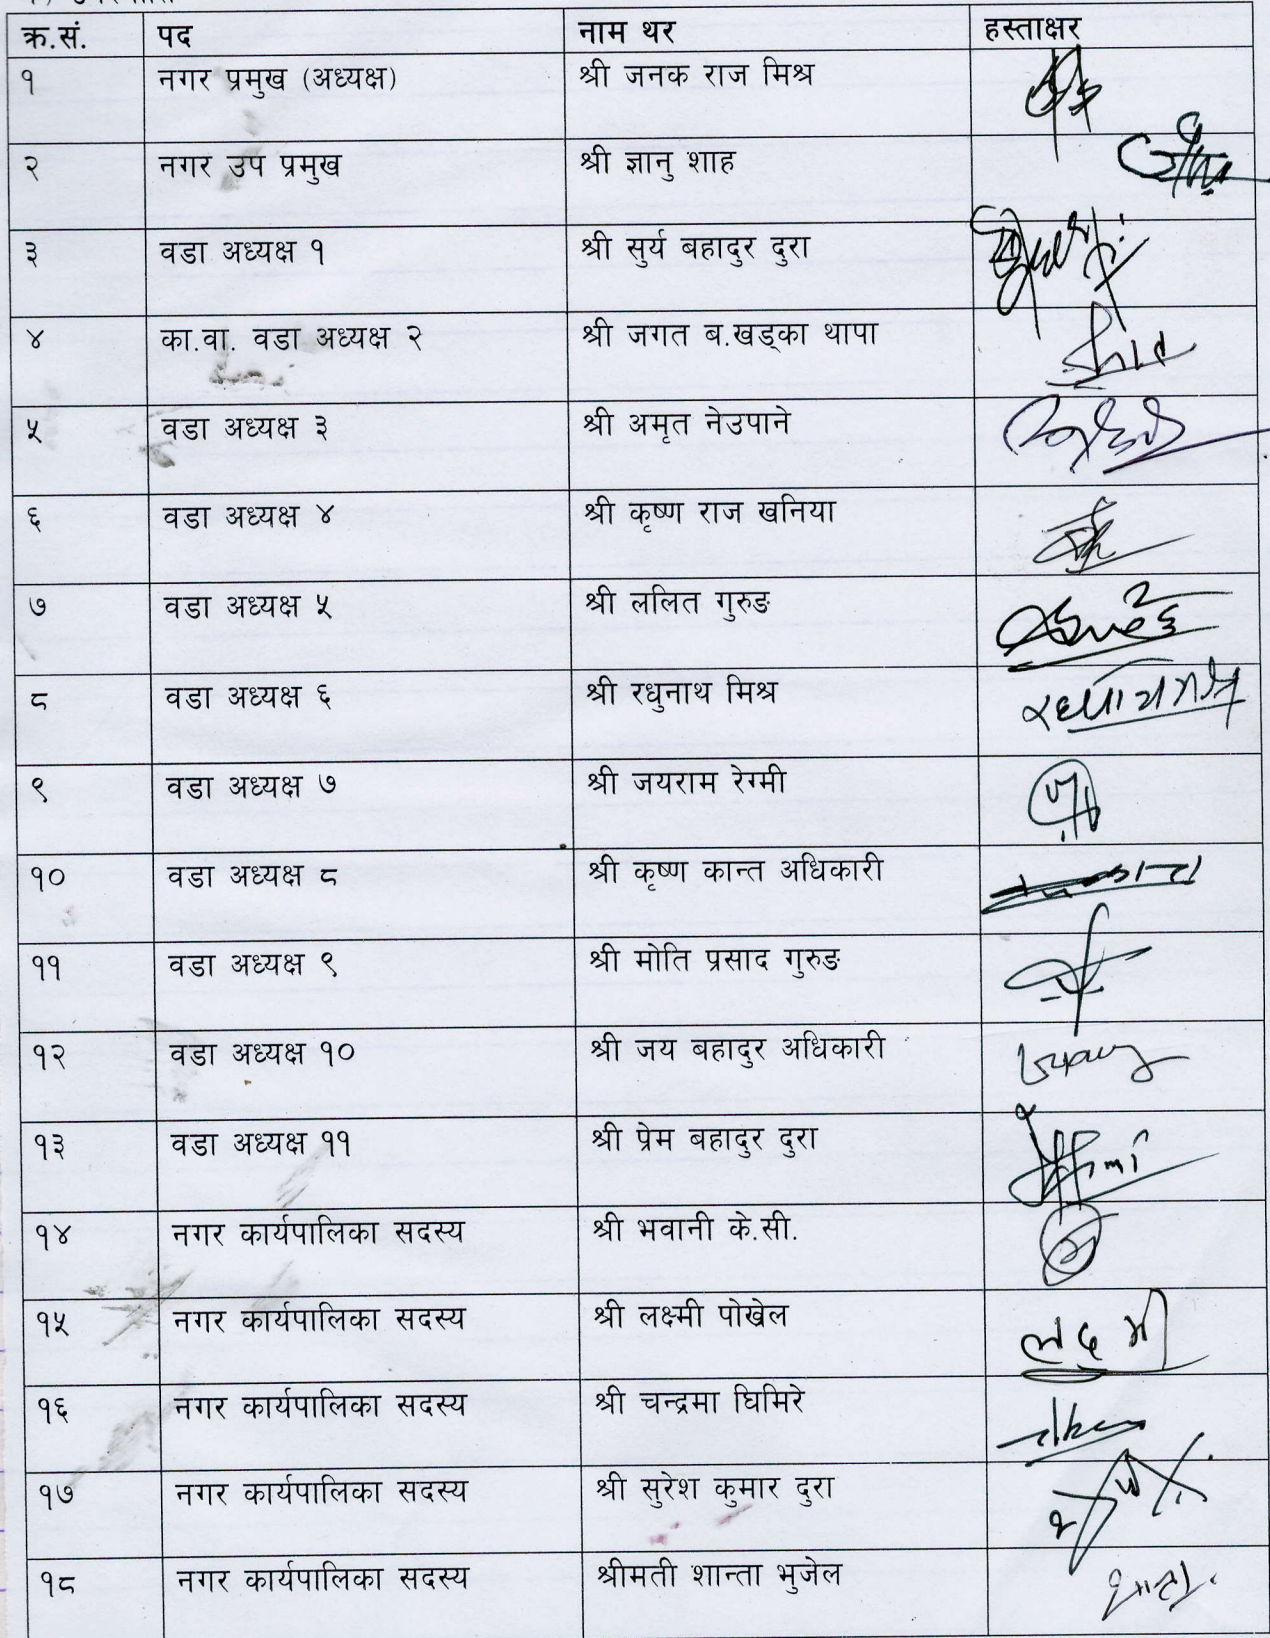 क्र.सं. पद नाम थर हस्ताक्षर
१ नगर प्रमुख (अध्यक्ष) श्री जनक राज मिश्र
२ नगर उप प्रमुख श्री ज्ञानु शाह
३ वडा अध्यक्ष १ श्री सुर्य बहादुर दुरा
४ का.वा. वडा अध्यक्ष २ श्री जगत ब.खड्का थापा
५ वडा अध्यक्ष ३ श्री अमृत नेउपाने
६ वडा अध्यक्ष ४ श्री कृष्ण राज खनिया
७ वडा अध्यक्ष ५ श्री ललित गुरुङ
८ वडा अध्यक्ष ६ श्री रधुनाथ मिश्र
९ वडा अध्यक्ष ७ श्री जयराम रेग्मी
१० वडा अध्यक्ष ८ श्री कृष्ण कान्त अधिकारी
११ वडा अध्यक्ष ९ श्री मोति प्रसाद गुरुङ
१२ वडा अध्यक्ष १० श्री जय बहादुर अधिकारी
१३ वडा अध्यक्ष ११ श्री प्रेम बहादुर दुरा
१४ नगर कार्यपालिका सदस्य श्री भवानी के.सी.
१५ नगर कार्यपालिका सदस्य श्री लक्ष्मी पोख्रेल
१६ नगर कार्यपालिका सदस्य श्री चन्द्रमा घिमिरे
१७ नगर कार्यपालिका सदस्य श्री सुरेश कुमार दुरा
१८ नगर कार्यपालिका सदस्य श्रीमती शान्ता भुजेल